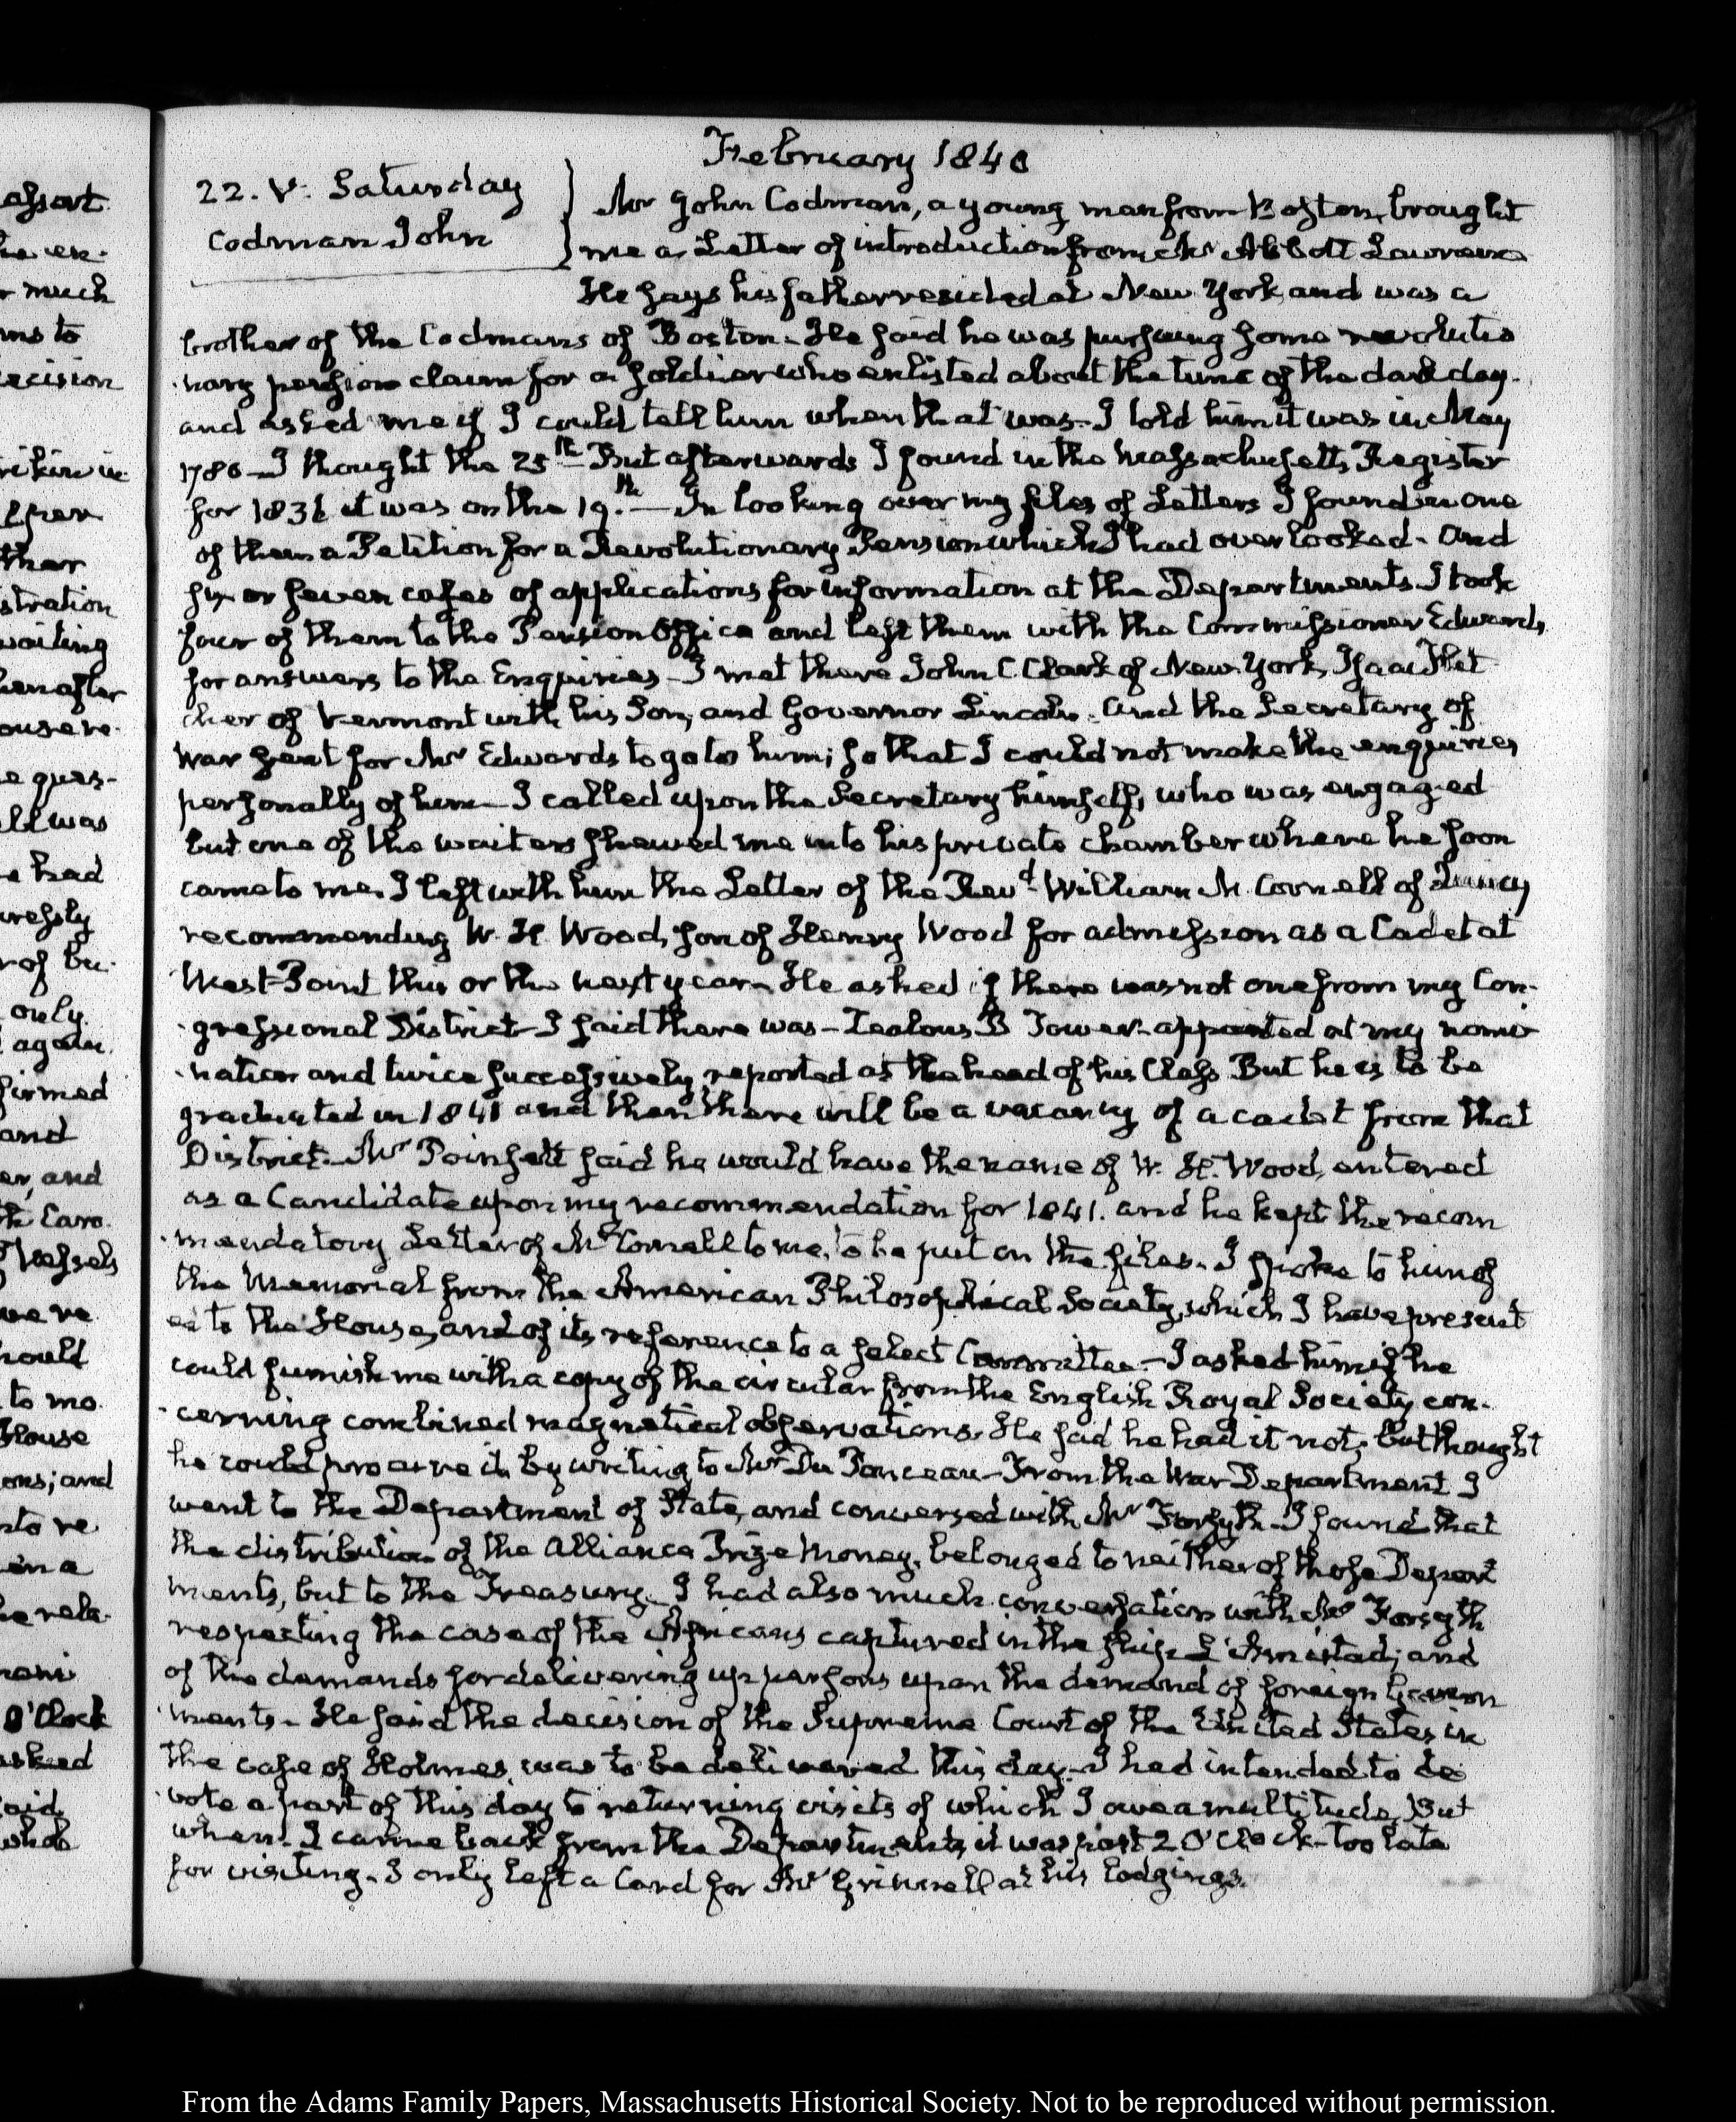 February 1840
22. V. Saturday
Codman John
Mr John Codman, a young man from Boston, brought
me a Letter of introduction from Mr Abbott Lawrence
He says his father resided at New York, and was a
brother of the Codmans of Boston. He said he was pursuing some revolutio
nary pension claim for a soldier who enlisted about the time of the dark day.
and asked me if I could tell him when that was. I told him it was in May
1780 — I thought the 25th But afterwards I found in the Massachusetts Register
for 1831 it was on the 19.th — In looking over my files of Letters I found in one
of them a Petition for a Revolutionary Pension which I had overlooked. And
six or seven cases of applications for information at the Departments. I took
four of them to the Pension Office and left them with the Commissioner Edwards,
for answers to the Enquiries — I met there John C. Clark of New York, Isaac Flet
cher of Vermont with his Son, and Governor Lincoln. And the Secretary of
War sent for Mr Edwards to go to him; so that I could not make the enquiries
personally of him — I called upon the Secretary himself, who was engaged
but one of the waiters shewed me into his private chamber where he soon
came to me. I left with him the Letter of the Revd William M. Cornell of Quincy
recommending W. H. Wood, son of Henry Wood for admission as a Cadet at
West-Point this or the next year. He asked if there was not one from my Con-
gressional District — I said there was — Zealous B Tower appointed at my nomi
nation and twice successively reported as the head of his Class But he is to be
graduated in 1841 and then there will be a vacancy of a cadet from that
District. Mr Poinsett said he would have the name of W. H. Wood, entered
as a Candidate upon my recommendation for 1841. and he kept the recom
mendatory Letter of Mr Cornell to me, to be put on the files. I spoke to him of
the Memorial from the American Philosophical Society, which I have present
ed to the House, and of its reference to a select Committee — I asked him if he
could furnish me with a copy of the circular from the English Royal Society con-
cerning combined magnetical observations. He said he had it not; but thought
he could procure it by writing to Mr Du Ponceau — From the War Department I
went to the Department of State, and conversed with Mr Forsyth — I found that
the distribution of the Alliance Prize Money, belonged to neither of those Depart
ments, but to the Treasury. I had also much conversation with Mr Forsyth
respecting the case of the Africans captured in the ship L'Amistad; and
of the demands for delivering up persons upon the demand of foreign Govern
ments. He said the decision of the Supreme Court of the United States in
the case of Holmes, was to be delivered this day. I had intended to de
vote a part of this day to returning visits of which I owe a multitude, But
when I came back from the Departments it was past 2 O'Clock — too late
for visiting. I only left a Card for Mr Grinnell at his lodgings.
From the Adams Family Papers, Massachusetts Historical Society. Not to be reproduced without permission.